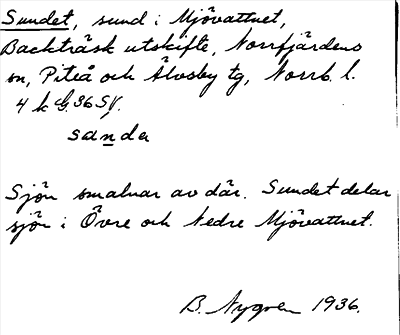 Sundet, sund i Mjövattnet,
Backträsk utskifte, Norrfjärdens
sn, Piteå och Älvsby tg, Norrb. l.
4 k G. 36 SV.
sanda
Sjön smalnar av där. Sundet delar
sjön i Övre och Nedre Mjövattnet.
B. Nygren 1936.